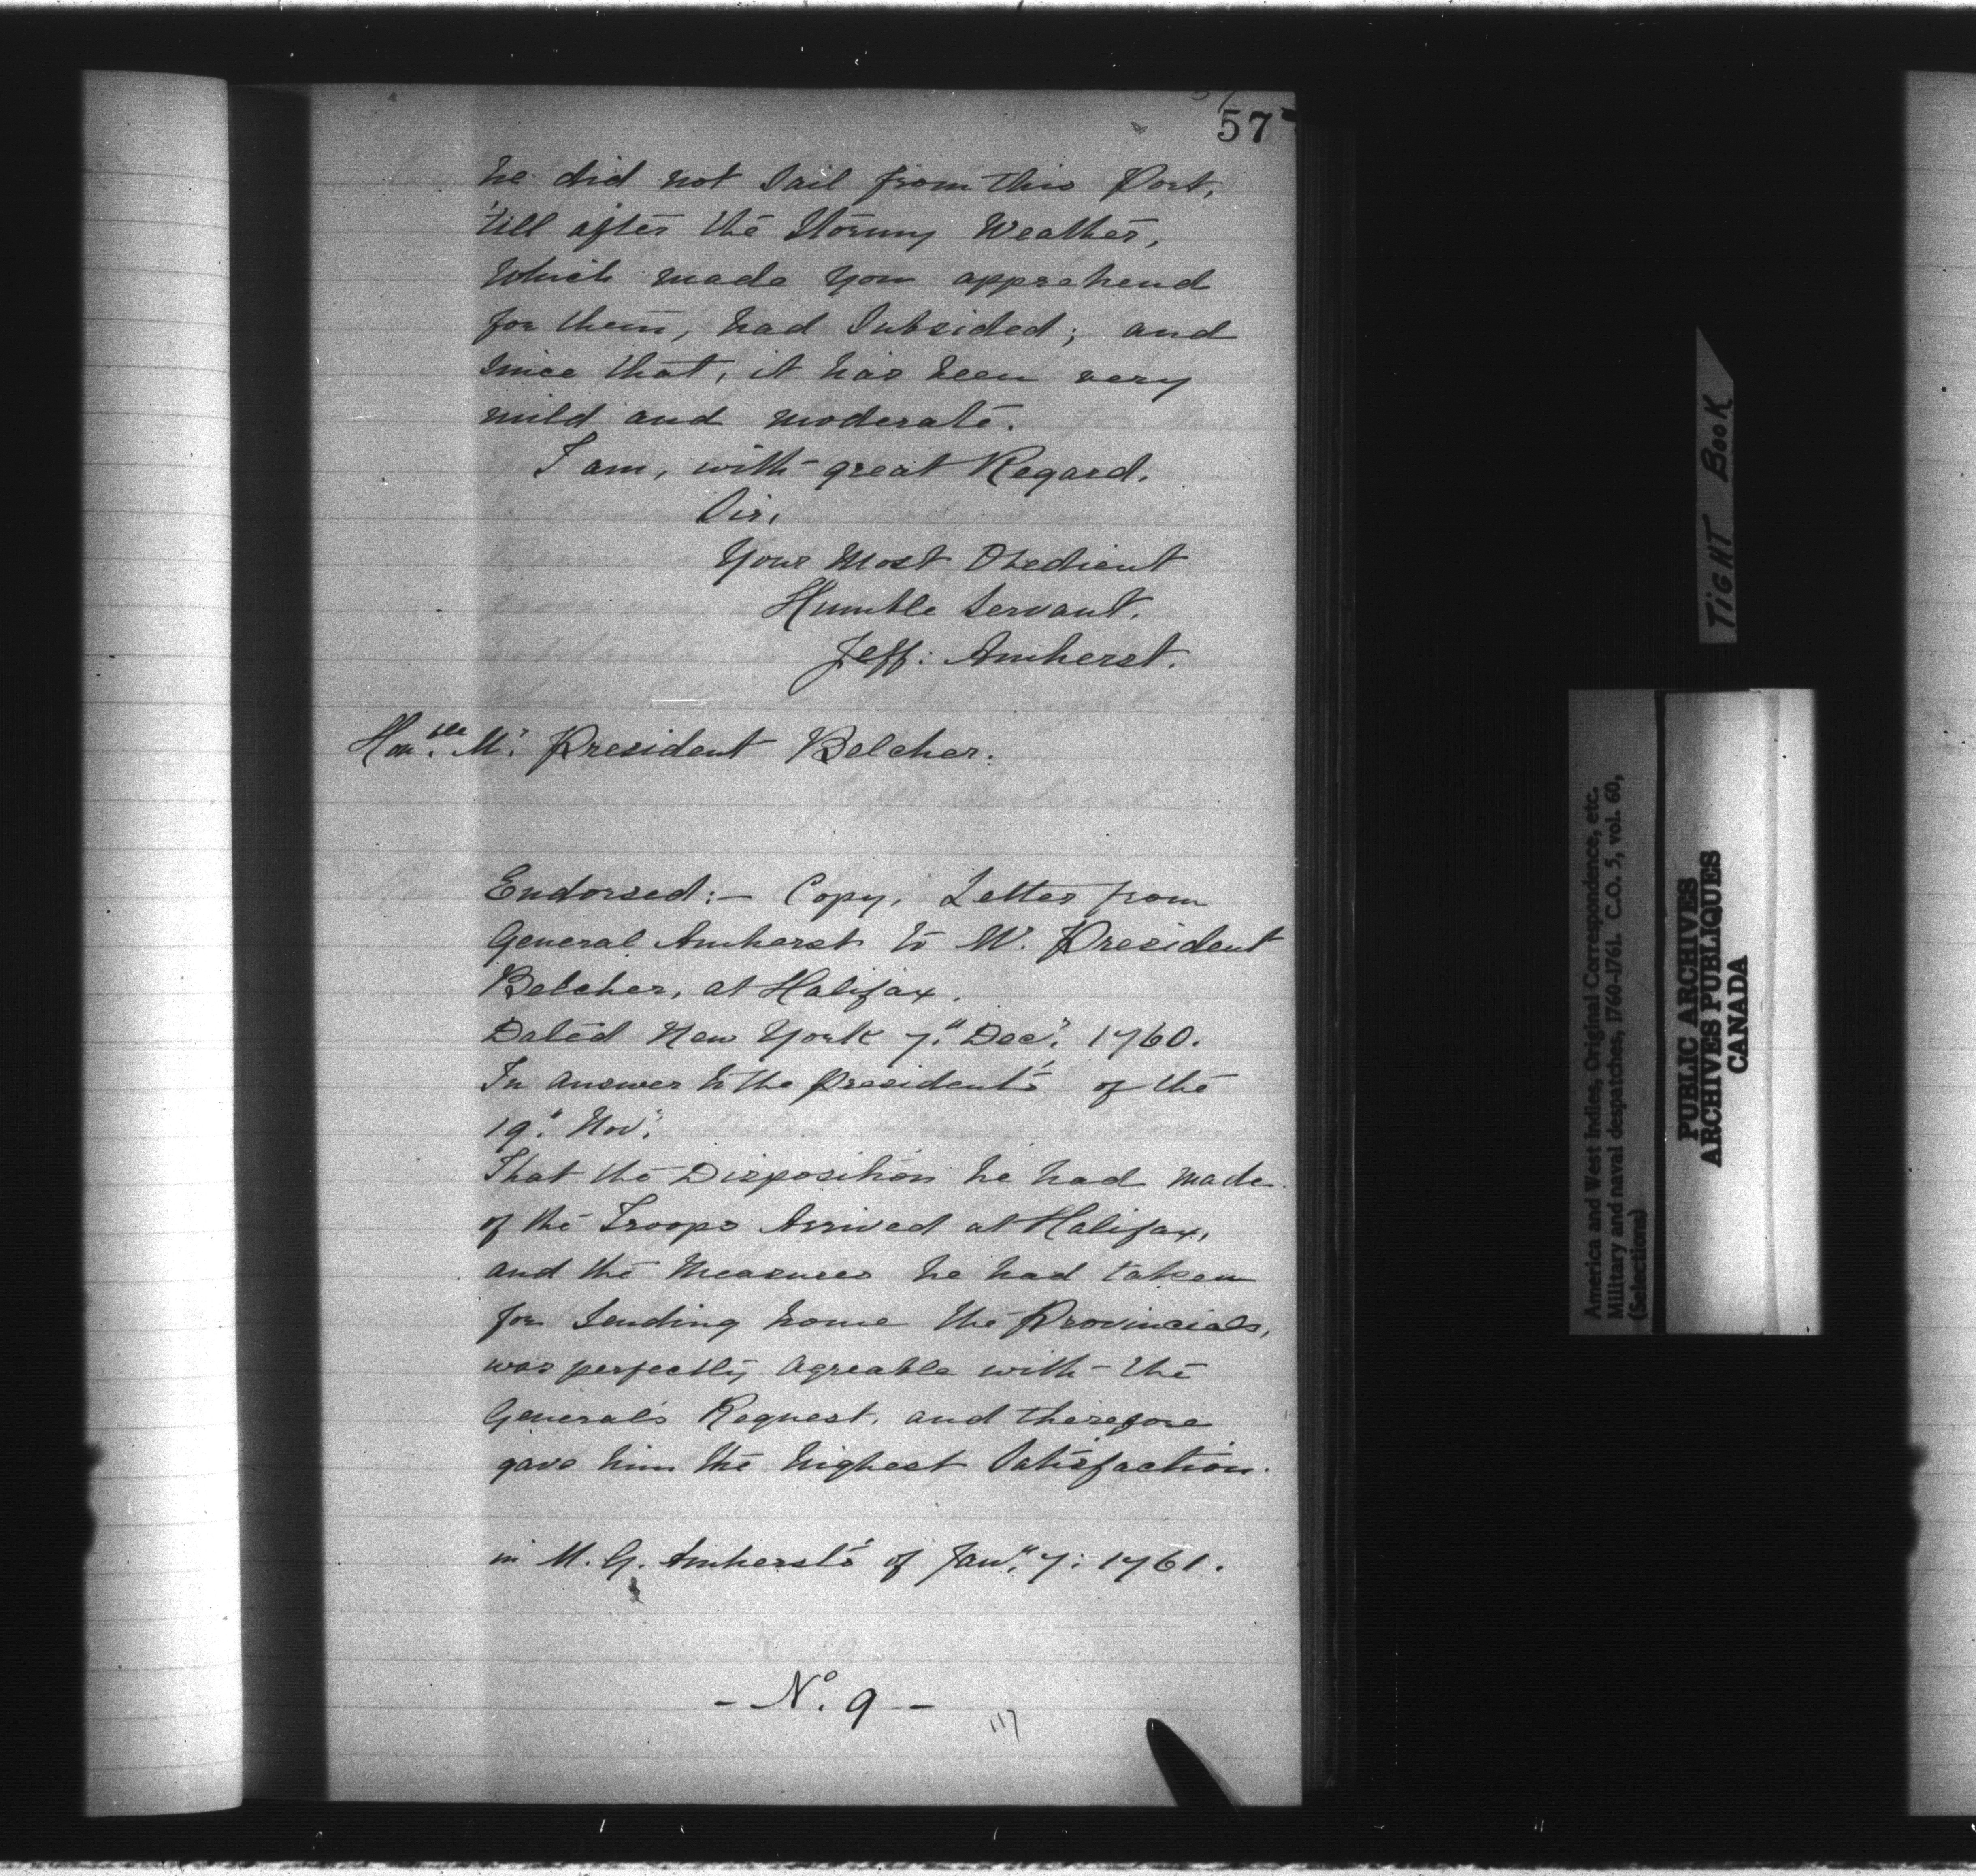 57
he did not Sail from this Port,
'till after the Stormy Weather,
which made you apprehend
for them, had Subsided; and
since that, it has been very
mild and moderate.
I am, with great Regard,
Sir,
Your Most Obedient
Humble Servant.
Jeff: Amherst.
Hon.ble Mr. President Belcher.
Endorsed:- Copy, Letter from
General Amherst to Mr. President
Belcher, at Halifax.
Dated New York 7.th Decr. 1760.
In answer to the President's of the
19.th Novr.
That the Disposition he had made
of the Troops Arrived at Halifax,
and the Measures he had taken
for Sending home the Provincials,
was perfectly agreable with the
General's Request, and therefore
gave him the highest Satisfaction.
in M. G. Amherst's of Jany. 7: 1761.
- No. 9 -
117
TIGHT BOOK
America and West Indies, Original Correspondence, etc.
Military and naval despatches, 1760-1761. C.O. 5, vol. 60,
(Selections)
PUBLIC ARCHIVES
ARCHIVES PUBLIQUES
CANADA